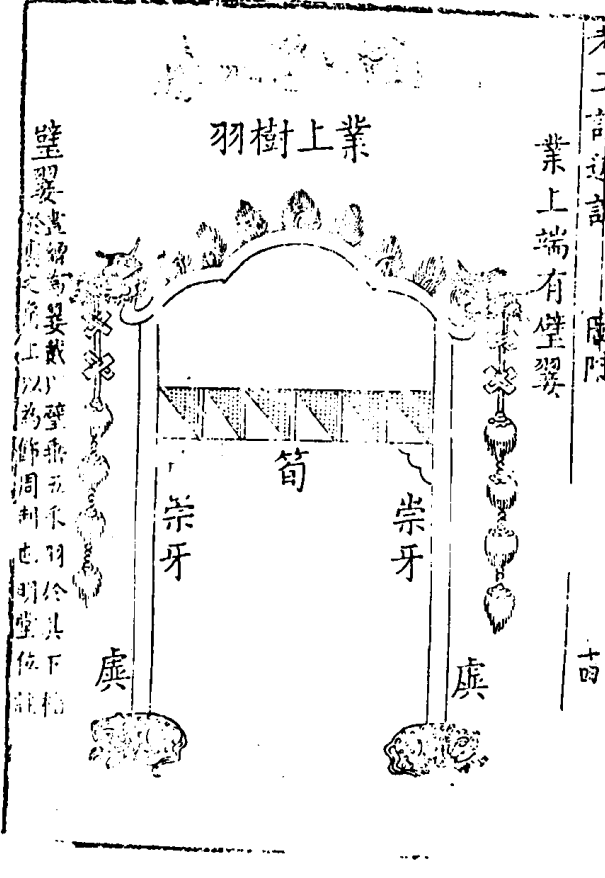 考工記述註
十四
業上端有壁翣
業上樹羽
筍
崇牙
崇牙
虡
虡
璧翣
畫繒為翣戴以璧垂五采羽於其下
於虡之角上以為飾周制也明堂位註